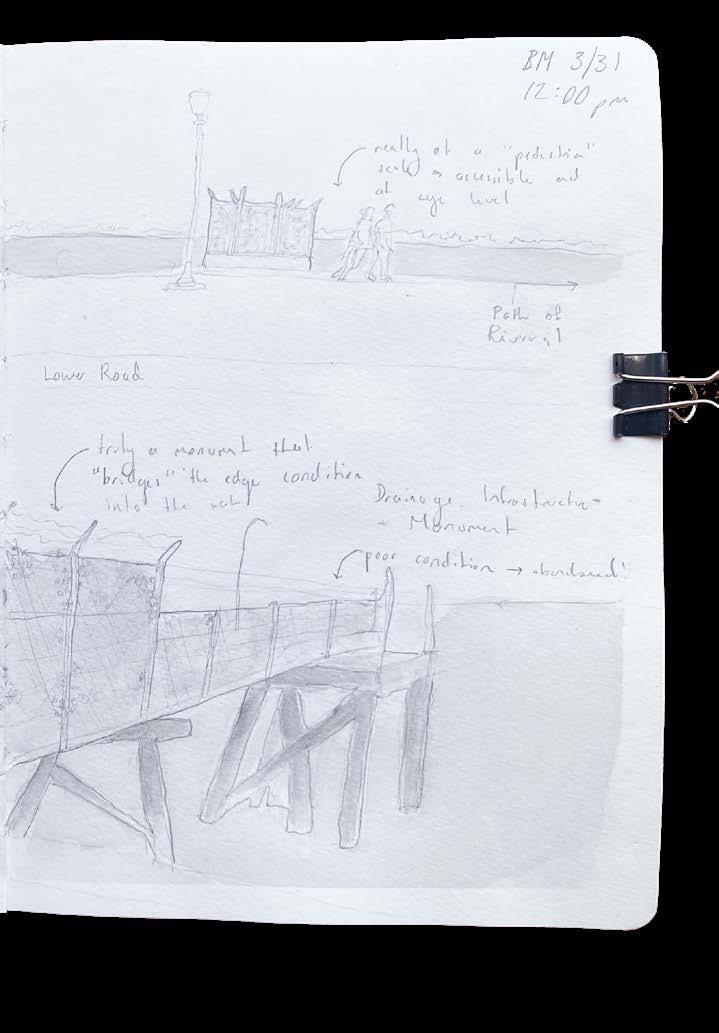 BM 3/31
12:00 pm
really of a "pedestria"
scale → accessible and
at eye level
Path of
Lower Road
truly a monument that
"bridges" the edge condition
into the
Drainage
+ Monument
poor condition → abandoned!